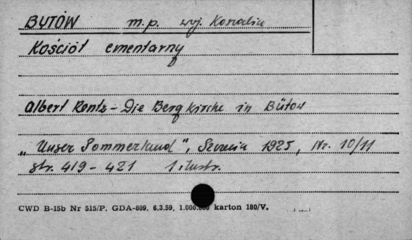 BYTÓW m.p. woj. Koszalin
Kościół cmentarny
Albert Rentz - Die Bergkirche in Bütow
„Unser Pommerland", 1925, Nr. 10/11
str. 419 - 421 1 ilustr.
CWD B-15b Nr 515/P. GDA-609. 6.3.59. karton 180/V.